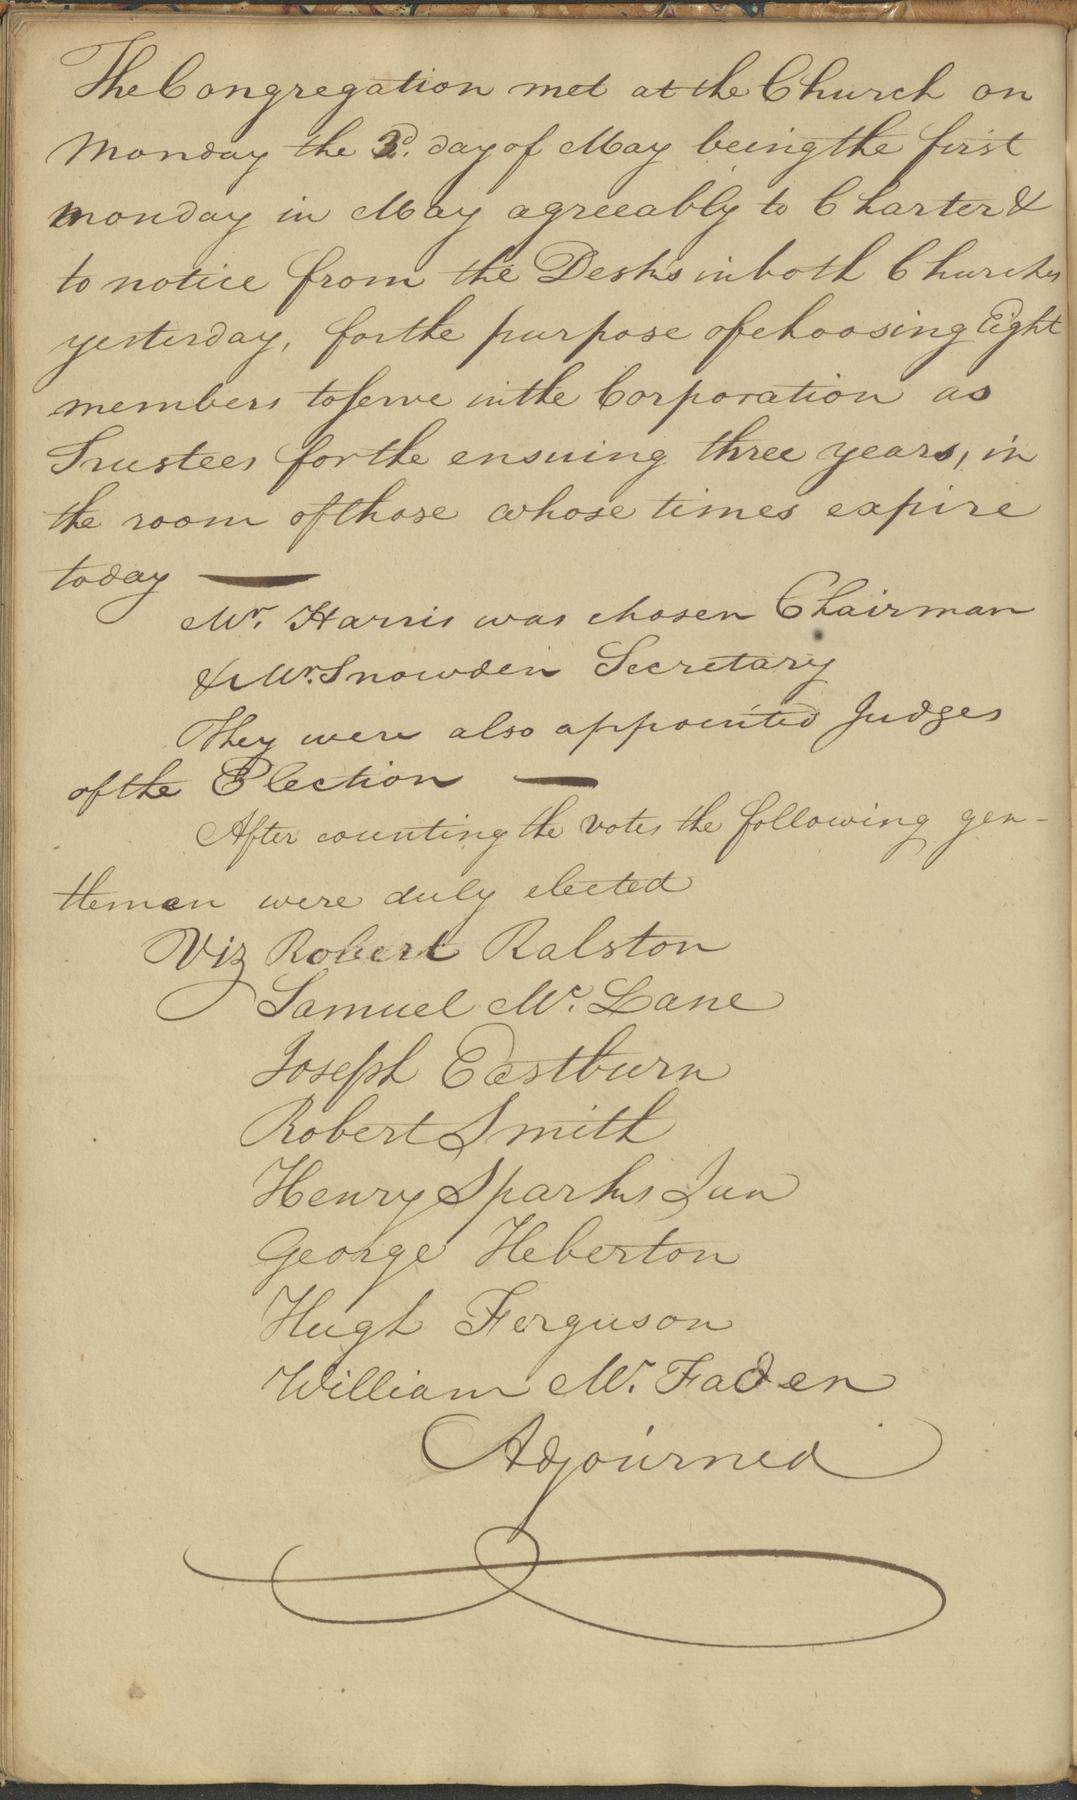 The Congregation met at the Church on
Monday the 3d. day of May being the first
monday in May agreeably to Charter &
to notice from the Desks in both Churches
yesterday, for the purpose of choosing Eight
members to serve in the Corporation as
Trustees for the ensuing three years, in
the room of those whose times expire
today —
Mr. Harris was chosen Chairman
& Mr. Snowden Secretary
They were also appointed Judges
of the Election —
After counting the votes the following gen-
tlemen were duly elected
Viz Robert Ralston
Samuel Mc. Lane
Joseph Eastburn
Robert Smith
Henry Sparks Jun
George Heberton
Hugh Ferguson
William Mc. Faden
Adjourned